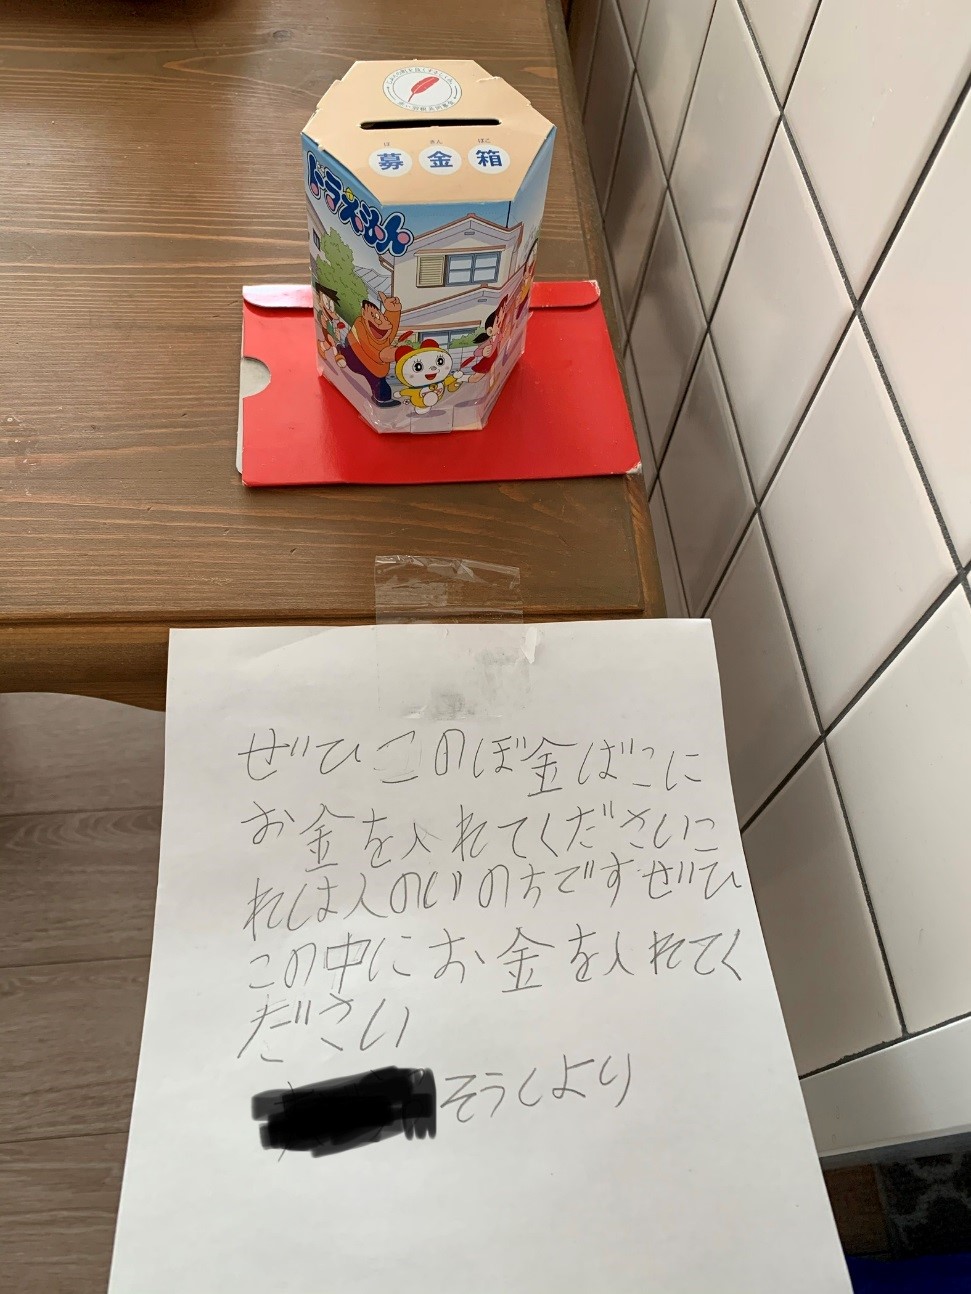 募金箱
ぼ きん ばこ
ドラえもん
ぜひこのぼ金ばこに
お金を入れてくださいこ
れは人のいのちですぜひ
この中にお金を入れてく
ださい
そうしより